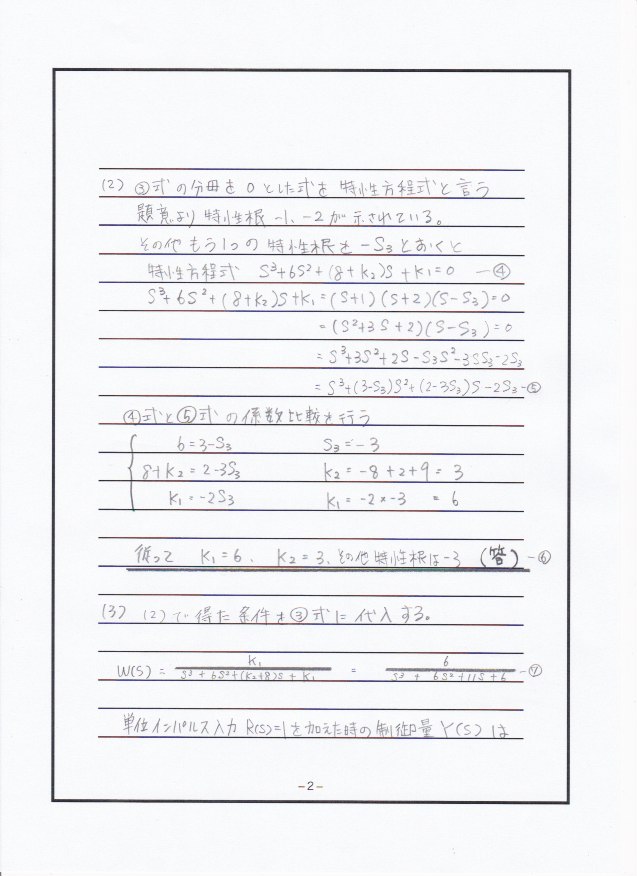 (2) ③式の分母を0とした式を特性方程式と言う
題意より特性根 -1、-2が示されている。
その他もう1つの特性根を -S₃とおくと
特性方程式 S³+6S²+(8+K₂)S+K₁=0 —④
S³+6S²+(8+K₂)S+K₁=(S+1)(S+2)(S-S₃)=0
=(S²+3S+2)(S-S₃)=0
=S³+3S²+2S-S₃S²-3SS₃-2S₃
=S³+(3-S₃)S²+(2-3S₃)S-2S₃ -⑤
④式と⑤式の係数比較を行う
6=3-S₃ S₃=-3
8+K₂=2-3S₃ K₂=-8+2+9=3
K₁=-2S₃ K₁=-2×-3 =6
従って K₁=6、 K₂=3、その他特性根は-3 (答) -⑥
(3) (2)で得た条件を③式に代入する。
W(S)= K₁/(S³+6S²+(K₂+8)S+K₁) = 6/(S³+6S²+11S+6) -⑦
単位インパルス入力R(S)=1を加えた時の制御量Y(S)は
-2-